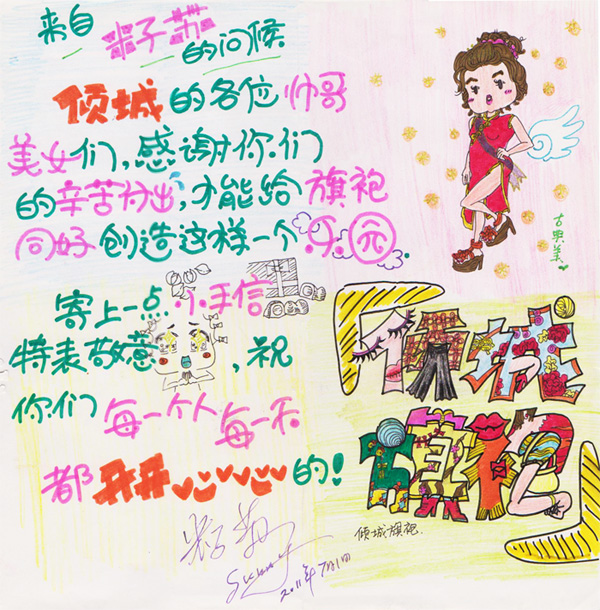 来自
籽苏
的问候
倾城的各位帅哥
美女们,感谢你们
的辛苦付出,才能给旗袍
同好创造这样一个乐园.
寄上一点小手信
特表敬意,祝
你们每一个人每一天
都开开心心的!
2011年7月1日
古典美
倾城
旗袍
倾城旗袍.